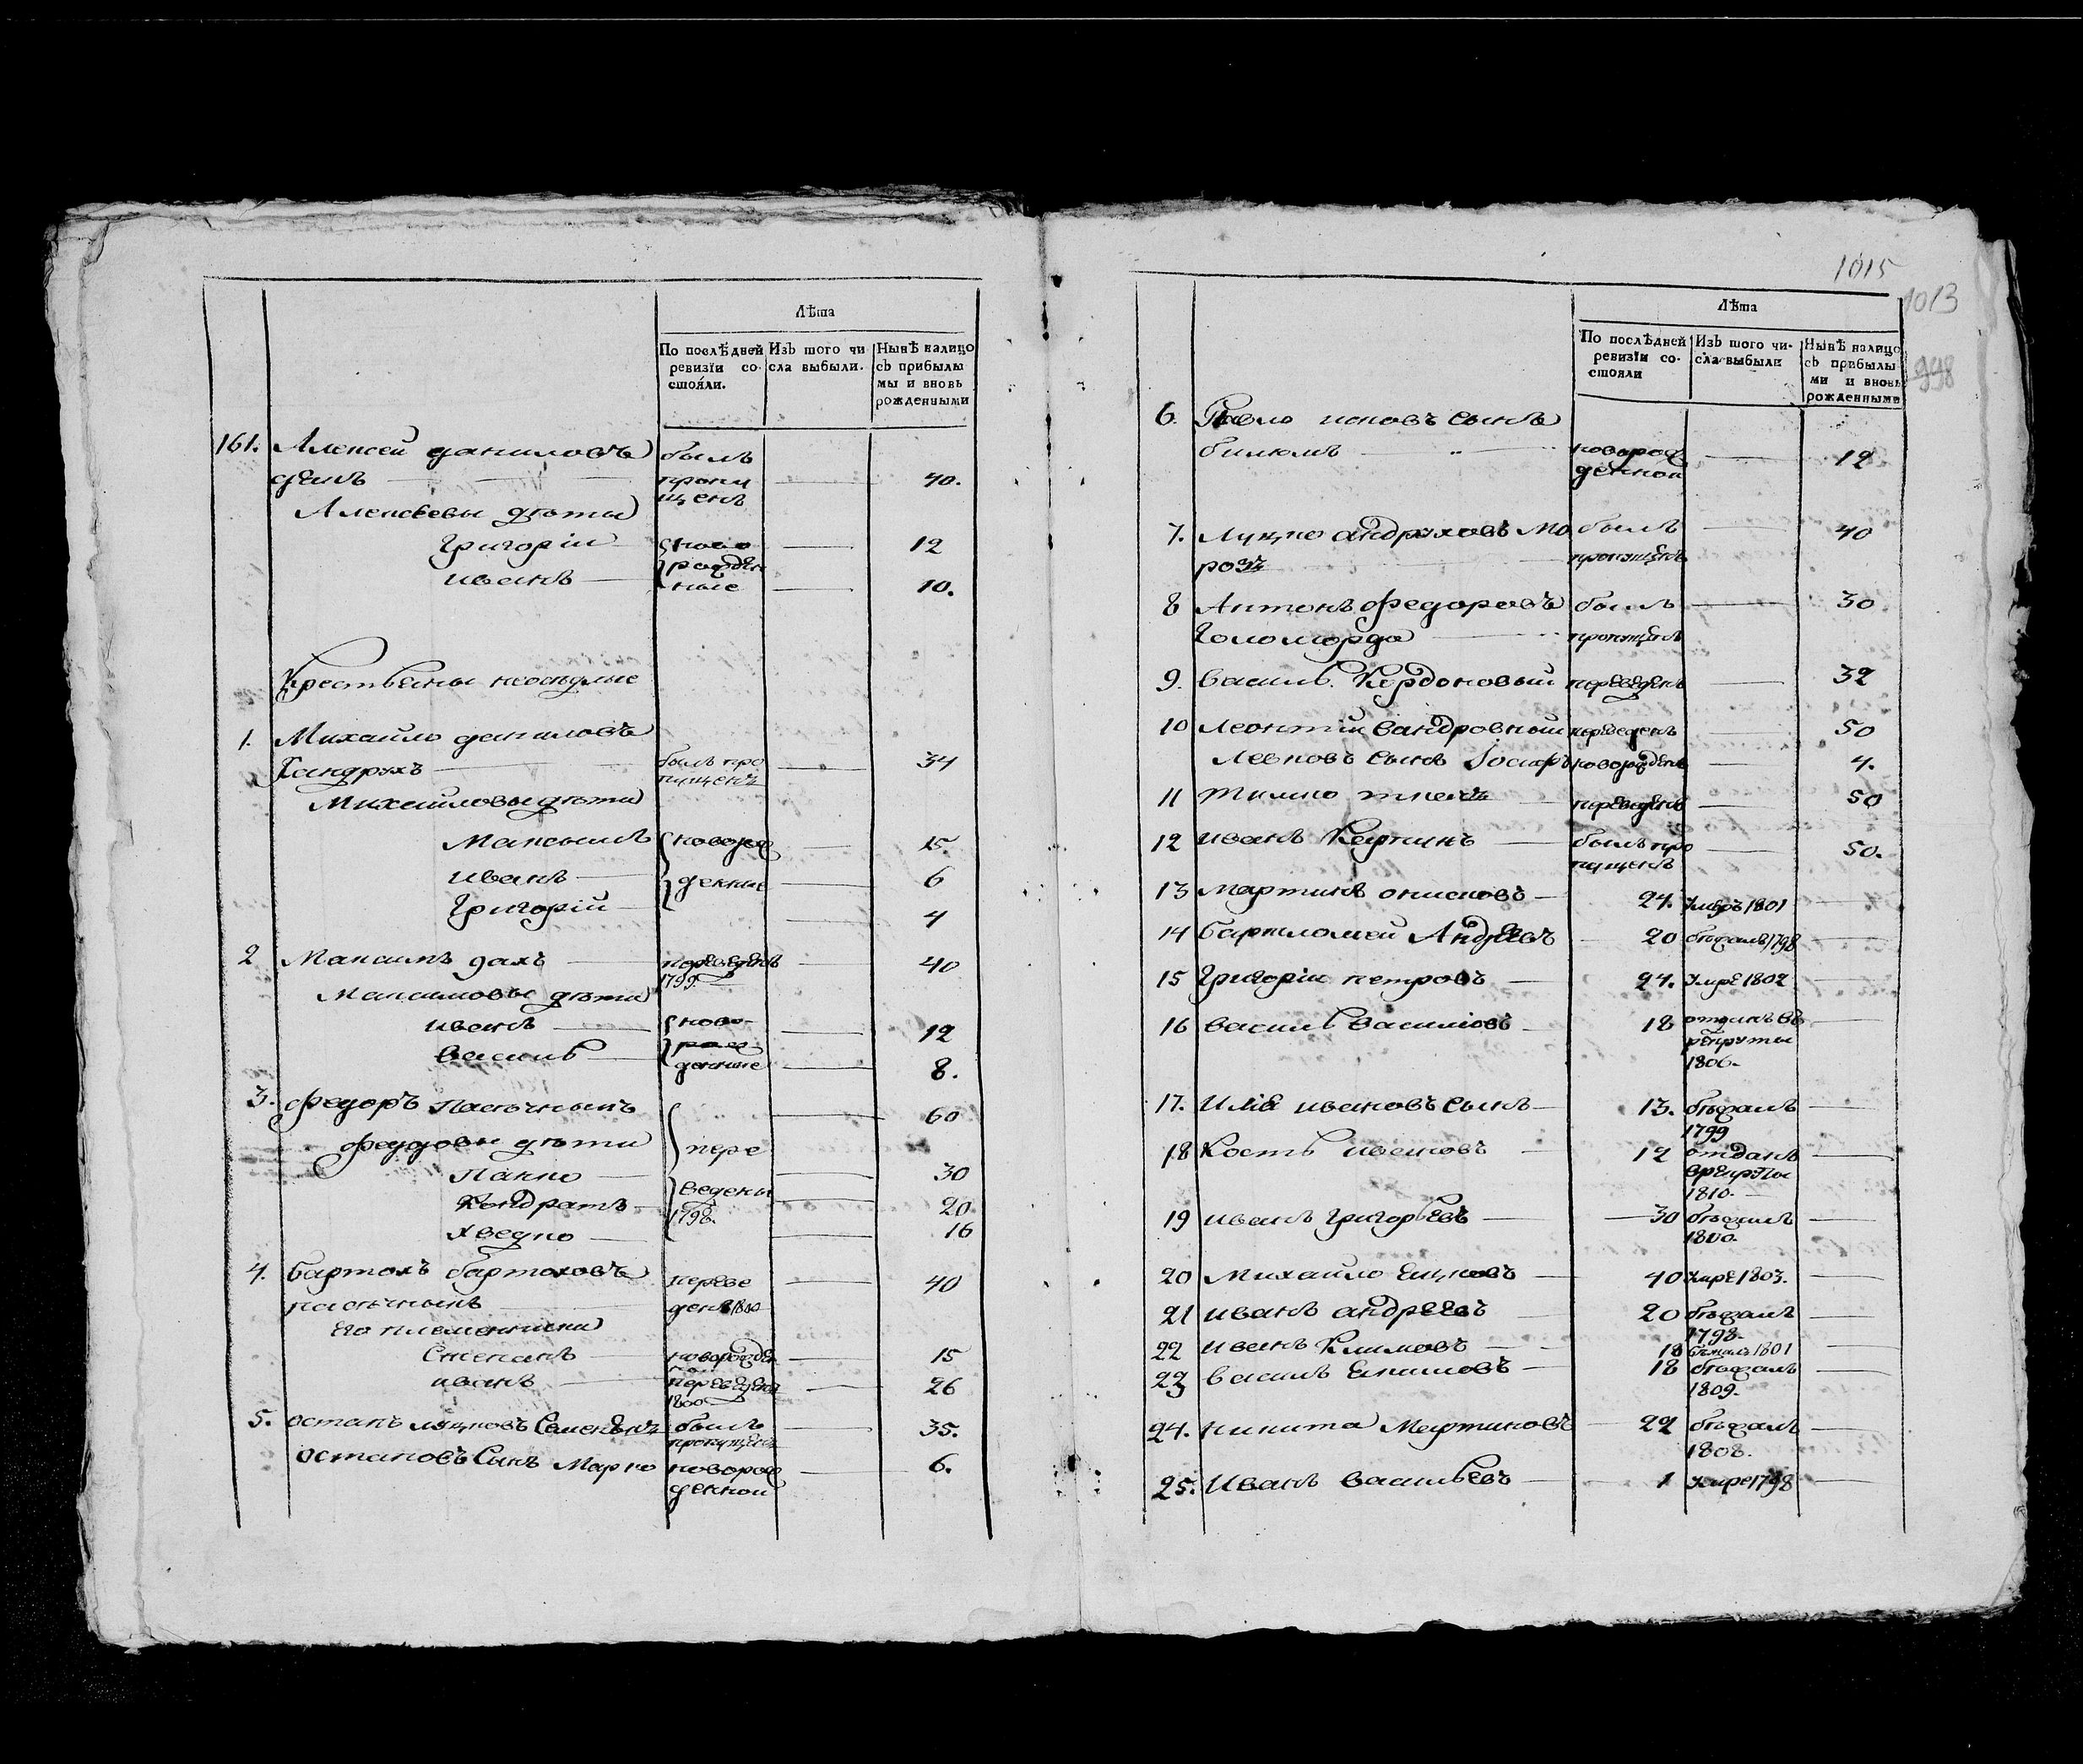 Лѣта
По послѣдней ревизіи со-стояли.
Изъ того чи сла выбыли.
Нынѣ налицо съ прибылы ми и вновь рожденными
161. Алексей даниловъ былъ
пропу щенъ 40.
Алексѣевы дѣти
Григорій ново 12
иванъ рожден ные 10.
Крестьяны неоседлые
1. Михайло даниловъ
былъ про пущенъ 34
Михайловы дѣти
Максымъ новорож 15.
иванъ денные 6
Григорій 4
2 Максимъ дахъ переведенъ 1799. 40
Максимовы дѣти
иванъ ново 12
василь рож денные 8.
3. Федоръ Пасѣчныкъ 60
Федоровы дѣти пере
Панко 30
Кондратъ ведены 20
хведко 1798. 16
4. Бартохъ бартоховъ переве 40
пасѣчныкъ денъ 1800
Его племенники
Степанъ новорожден ной 15
иванъ переведенъ 1800 26
5. остапъ яцковъ былъ пропущенъ 35.
остаповъ Сынъ Марко новорож денной 6.
1015
1013
998
Лѣта
По послѣдней ревизіи со-стояли
Изъ того чи-сла выбыли
Нынѣ налицо съ прибылы ми и вновь рожденными
6. Павло исковъ Сынъ
новорож денной 12
7. Луцко андруховъ Мо былъ 40
розъ пропущенъ
8 Антонъ Федоровъ былъ 30
Голоморда пропущенъ
9. василь Кордоновый переведенъ 32
10 Леонтій вандровный переведенъ 50
новорожденъ 4.
11 Тимко ткачъ переведенъ 50
12 иванъ былъ про пущенъ 50.
13 Мартинъ онисковъ 24. Умеръ 1801
14 Бартломей Андреевъ 20 бѣжалъ 1798
15 Григорій петровъ 24. Умре 1802
16 василь василіовъ 18 отданъ въ рекруты
1806.
17. Илія ивановъ Сынъ 13. бѣжалъ
1799
18 Кость ивановъ 12 отданъ
в рекруты
1810.
19 иванъ григорьевъ 30 бѣжалъ
1800.
20 Михайло Ецковъ 40 умре 1803.
21 иванъ андреевъ 20 бѣжалъ
1798.
22 иванъ Климовъ 18 бѣжалъ 1801
23 василь 18 бѣжалъ
1809.
24. никита Мартиновъ 22 бѣжалъ
1808.
25. Иванъ васильевъ 1 Умре 1798